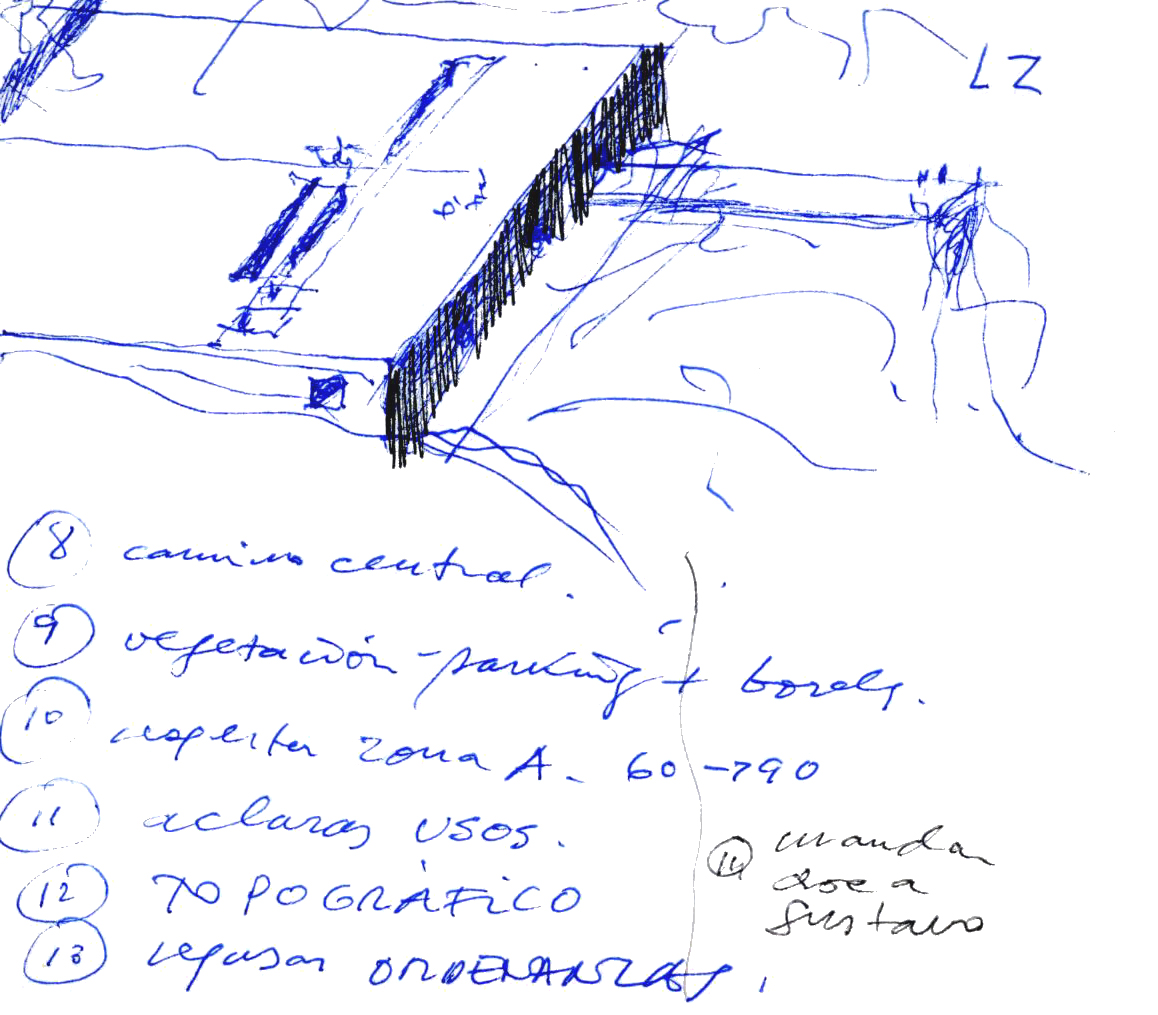 LZ
8 camino central.
9 vegetación - parking + borde
10 respetar zona A. 60 - 790
11 aclarar usos.
12 TOPOGRÁFICO
13 repasar ORDENANZAS.
11 mandar
doc a
Gustavo